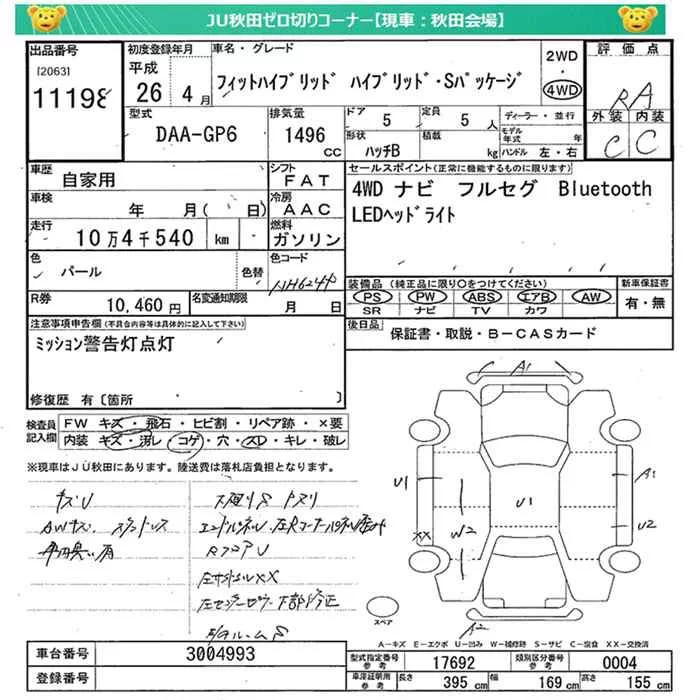 JU秋田ゼロ切りコーナー【現車：秋田会場】
出品番号
[2063]
11198
初度登録年月
平成
26 4月
車名・グレード
フィットハイブリッド ハイブリッド・Sパッケージ
2WD
・
4WD
評価点
RA
外装 内装
C C
型式
DAA-GP6
排気量
1496
CC
ドア
5
定員
5 人
形状
ハッチB
積載
kg
ディーラー・並行
モデル年式 年
ハンドル 左・右
車歴
自家用
シフト
FAT
車検
年 月( 日)
冷房
AAC
走行
10万4千540 km
燃料
ガソリン
色
パール
色替
色コード
NH624P
R券
10,460 円
名変通知期限
月 日
セールスポイント(正常に機能するものに限ります)
4WD ナビ フルセグ Bluetooth
LEDヘッドライト
装備品 (純正品に限り○をつけてください)
PS PW ABS エアB AW
SR ナビ TV カワ
新車保証書
有・無
後日品
保証書・取説・B-CASカード
注意事項申告欄(不具合内容等は具体的に記入して下さい)
ミッション警告灯点灯
修復歴 有〔箇所 〕
検査員
記入欄
FW キズ・飛石・ヒビ割・リペア跡・×要
内装 キズ・汚レ・コゲ・穴・スレ・キレ・破レ
※現車はJU秋田にあります。陸送費は落札店負担となります。
キズU
下廻りS
A1
U1
A1
U1
U2
XX
W2
A2
スペア
A-キズ E-エクボ U-凹み W-補修跡 S-サビ C-腐食 XX-交換済
車台番号
3004993
登録番号
型式指定番号
参考
17692
類別区分番号
参考
0004
車庫証明用
参考
長さ
395 cm
幅
169 cm
高さ
155 cm